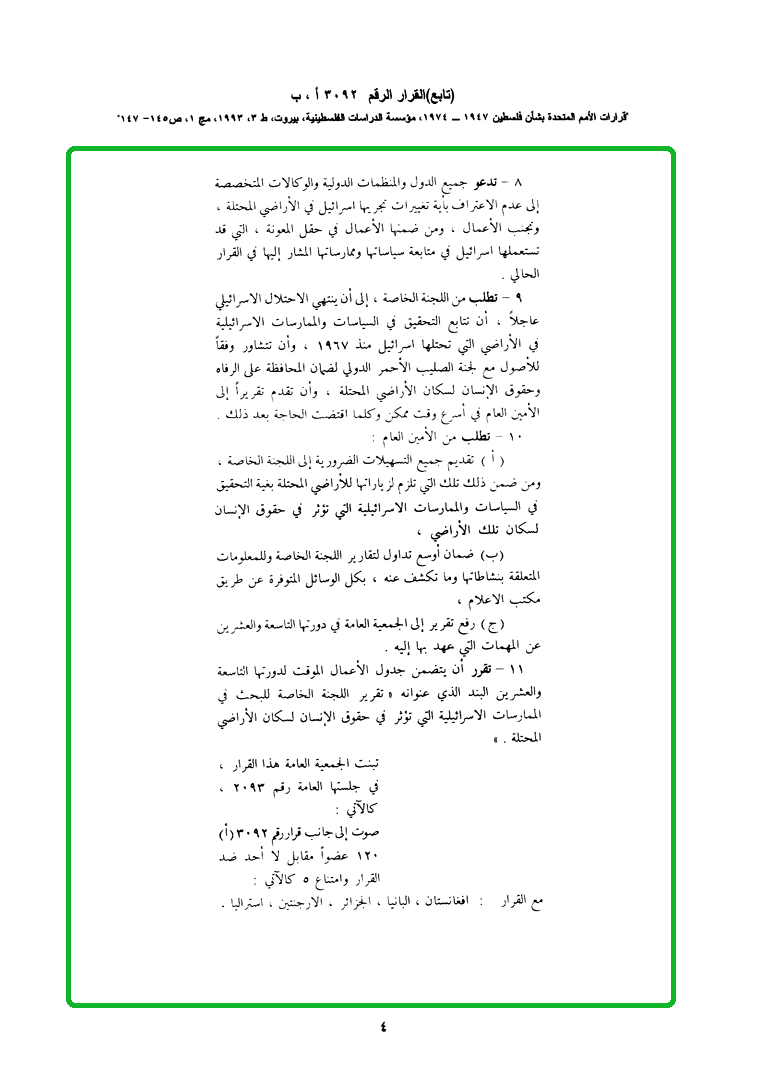 (تابع)القرار الرقم ٣٠٩٢ أ ، ب
"قرارات الأمم المتحدة بشأن فلسطين ١٩٤٧ – ١٩٧٤، مؤسسة الدراسات الفلسطينية، بيروت، ط ٣، ١٩٩٣، مج ١، ص١٤٥– ١٤٧"
٨ – تدعو جميع الدول والمنظمات الدولية والوكالات المتخصصة
إلى عدم الاعتراف بأية تغييرات تجريها اسرائيل في الأراضي المحتلة ،
وتجنب الأعمال ، ومن ضمنها الأعمال في حقل المعونة ، التي قد
تستعملها اسرائيل في متابعة سياساتها وممارساتها المشار إليها في القرار
الحالي .
٩ – تطلب من اللجنة الخاصة ، إلى أن ينتهي الاحتلال الاسرائيلي
عاجلاً ، أن تتابع التحقيق في السياسات والممارسات الاسرائيلية
في الأراضي التي تحتلها اسرائيل منذ ١٩٦٧ ، وأن تتشاور وفقاً
للأصول مع لجنة الصليب الأحمر الدولي لضمان المحافظة على الرفاه
وحقوق الإنسان لسكان الأراضي المحتلة ، وأن تقدم تقريراً إلى
الأمين العام في أسرع وقت ممكن وكلما اقتضت الحاجة بعد ذلك .
١٠ – تطلب من الأمين العام :
( أ ) تقديم جميع التسهيلات الضرورية إلى اللجنة الخاصة ،
ومن ضمن ذلك تلك التي تلزم لزياراتها للأراضي المحتلة بغية التحقيق
في السياسات والممارسات الاسرائيلية التي تؤثر في حقوق الإنسان
لسكان تلك الأراضي ،
(ب) ضمان أوسع تداول لتقارير اللجنة الخاصة وللمعلومات
المتعلقة بنشاطاتها وما تكشف عنه ، بكل الوسائل المتوفرة عن طريق
مكتب الاعلام ،
(ج) رفع تقرير إلى الجمعية العامة في دورتها التاسعة والعشرين
عن المهمات التي عهد بها إليه .
١١ – تقرر أن يتضمن جدول الأعمال الموقت لدورتها التاسعة
والعشرين البند الذي عنوانه « تقرير اللجنة الخاصة للبحث في
الممارسات الاسرائيلية التي تؤثر في حقوق الإنسان لسكان الأراضي
المحتلة . »
تبنت الجمعية العامة هذا القرار ،
في جلستها العامة رقم ٢٠٩٣ ،
كالآتي :
صوت إلى جانب قرار رقم ٣٠٩٢ (أ)
١٢٠ عضواً مقابل لا أحد ضد
القرار وامتناع ٥ كالآتي :
مع القرار : افغانستان ، البانيا ، الجزائر ، الارجنتين ، استراليا .
٤